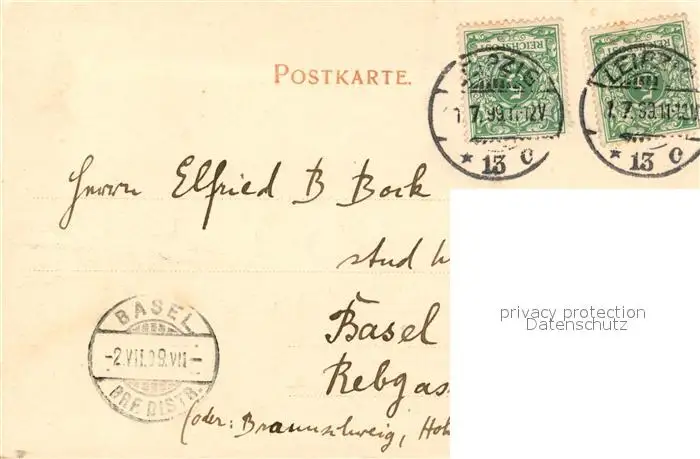 POSTKARTE.
REICHSPOST
REICHSPOST
LEIPZIG
1.7.99.11-12V.
* 13 c
LEIPZIG
1.7.99.11-12V.
* 13 c
Herrn Elfried B Bock
stud
Basel
Rebgas
(oder: Braunschweig, Hoh
BASEL
-2.VII.99.VII-
BRF.DISTR.
privacy protection
Datenschutz